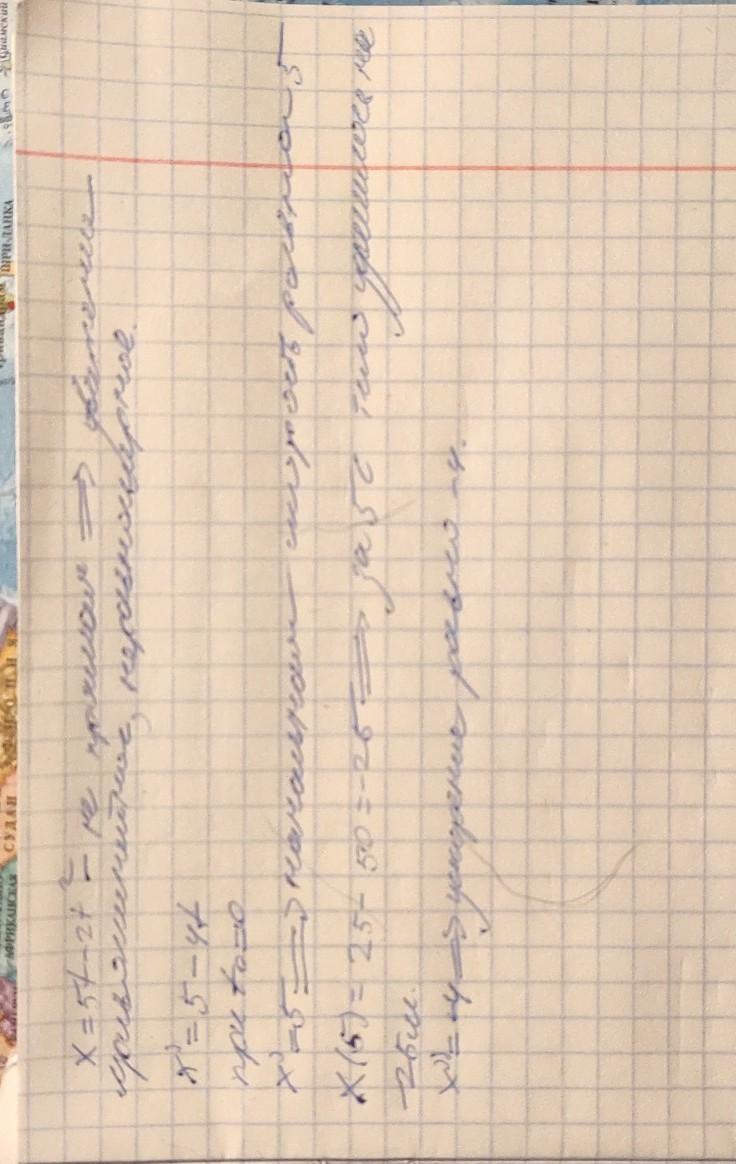 x = 5t - 2t² - не прямая ⟹ движение
криволинейное, неравномерное.
x' = 5 - 4t
при t₀=0
x' = 5 ⟹ начальная скорость равна 5
x(5) = 25 - 50 = -25 ⟹ за 5 с тело
-25 м.
x'' = -4 ⟹ ускорение равно -4.
СУДАН
АФРИКАНСКАЯ
ШРИ-ЛАНКА